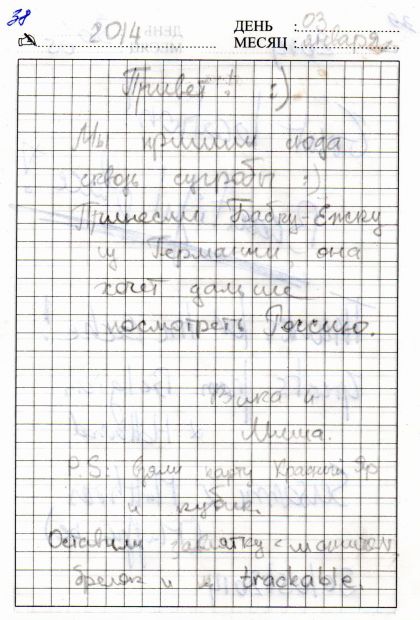 38
2014 ДЕНЬ : 03
МЕСЯЦ : января
Привет! :)
Мы пришли сюда
сквозь сугробы :)
Принесли Бабку-Ёжку
из Германии - она
хочет дальше
посмотреть Россию.
Вика и
Миша.
P.S: Взяли карту Красный Яр
и кубик.
Оставили
брелок и trackable.